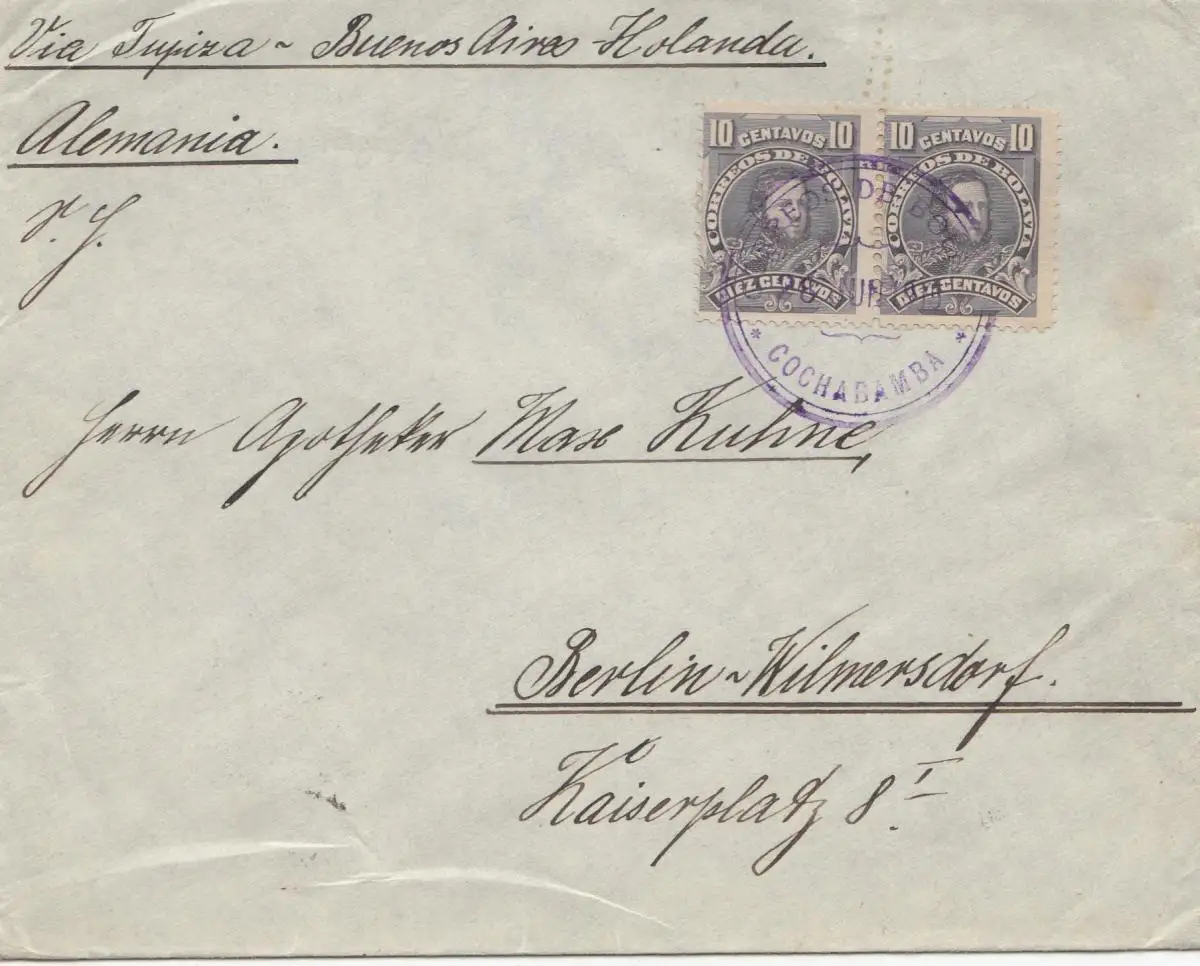 Via Tupiza ~ Buenos Aires - Holanda.
Alemania.
10 CENTAVOS 10
CORREOS DE BOLIVIA
DIEZ CENTAVOS
10 CENTAVOS 10
CORREOS DE BOLIVIA
DIEZ CENTAVOS
* COCHABAMBA *
Herrn Apotheker Max Kuhne,
Berlin ~ Wilmersdorf.
Kaiserplatz 8 I